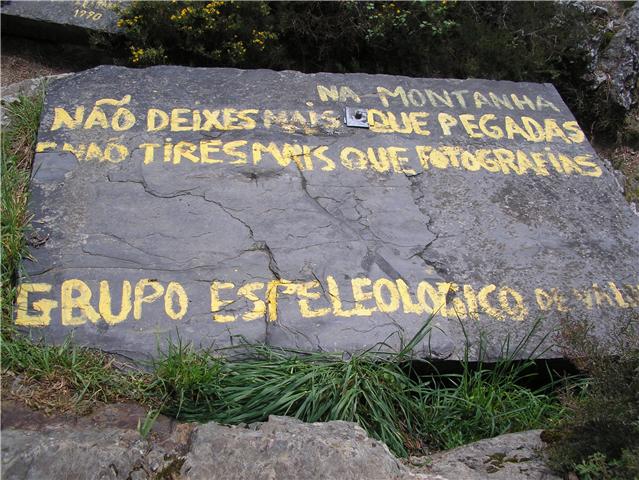 1970
NA MONTANHA
NÃO DEIXES MAIS QUE PEGADAS
E NÃO TIRES MAIS QUE FOTOGRAFIAS
GRUPO ESPELEOLOGICO DE